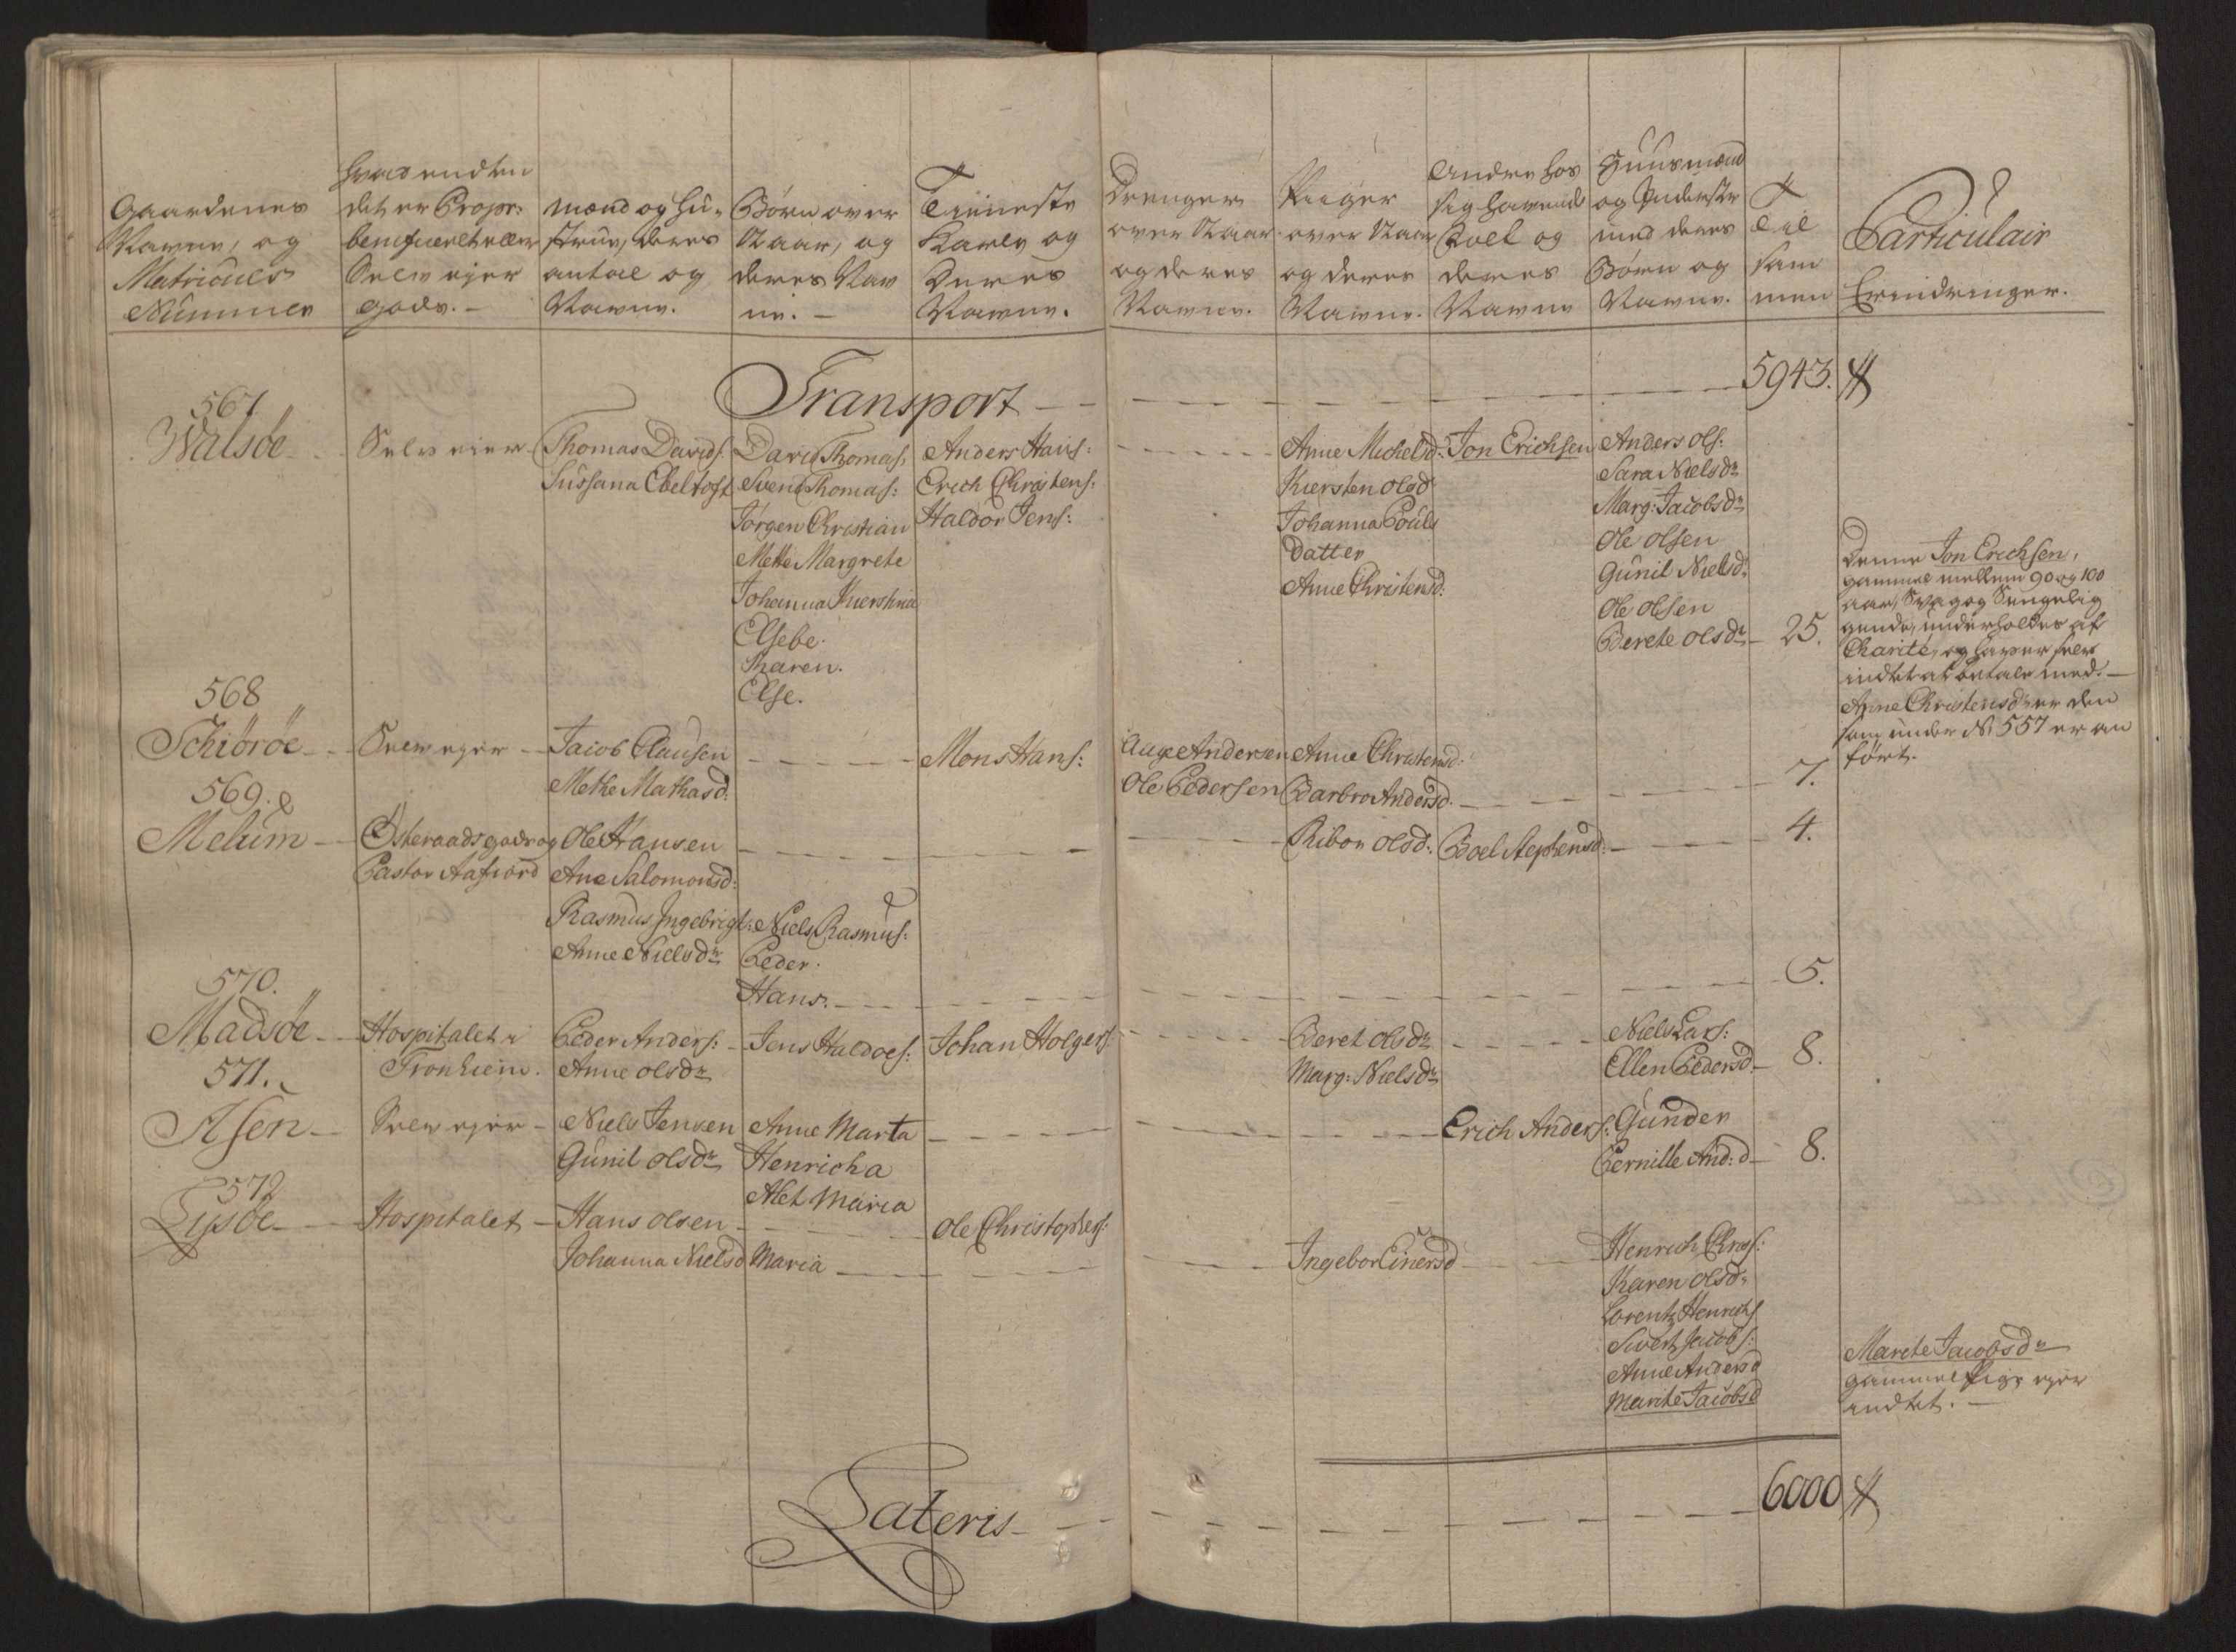 Gaardenes
Navne, og
Matriculs
Nummer
hvad endten
det er Propr:
beneficeret eller
Selv ejer
gods. -
Mænd og Hu-
struer, deres
antal og
Navne.
Børn over
12 aar, og
deres Nav
ne. -
Tienneste
Karle og
Deres
Navne.
Drenger
over 12 aar
og deres
Navne.
Piiger
over 12 aar
og deres
Navne.
Andre hos
sig havende
Folk og
deres
Navne
Huusmænd
og Inderster
med deres
Børn og
Navne.
Til
sam
men
Particulair
Erindringer.
Transport - - - - - - - 5943.
567
Walsöe - Selv eier -
Thomas Davids:
Sussana Ebeltoft
David Thomas:
Svend Thomas:
Jørgen Christian
Mette Margrete
Johanna Kierstina
Elsebe.
Karen.
Else.
Anders Hans:
Erich Christens:
Haldor Jens:
Anne Michelsd:
Kiersten Olsd
Johanna Pouls
Datter
Anne Christensd:
Jon Erichsen
Anders Ols:
Sara Nielsdr
Marg: Jacobsdr
Ole Olsen
Gunil Nielsd:
Ole Olsen
Berete Olsdr - 25.
Denne Jon Erichsen,
gammel mellem 90 og 100
aar, Svag og Sengelig
gende, underholdes af
Charité, og haver selv
indtet at betale med. -
Anne Christensdr er den
som under No 557 er an
ført.
568
Schiöröe - - Selv ejer -
Jacob Clausen
Mette Mathasd:
Mons Hans:
Aage Andersen
Ole Pedersen
Anne Christensd:
Barbro Andersd. - - - 7.
569.
Melum - Østeraads gods og
Pastor Aafiord
Ole Hansen
Ane Salomonsd:
Ribor Olsd:
Boel Stephensd: - - 4.
Rasmus Ingebrigt:
Anne Nielsdr
Niels Rasmus:
Peder.
Hans. - - - - 5.
570.
Madsöe - Hospitalet i
Tronhiem.
Peder Anders: -
Anne Olsdr
Jens Haldoes:
Johan Holgers:
Beret Olsdr
Marg: Nielsdr
Niels Lars:
Ellen Pedersd - 8.
571.
Asen - Selv ejer -
Niels Jensen
Gunil Olsdr
Anne Marta
Henricha
Alet Maria
Erich Anders:
Gunder
Pernille And: d - 8.
572
Lysöe - Hospitalet -
Hans Olsen
Johanna Nielsd
Maria
Ole Christophers:
Ingebor Einersd
Henrich Chras:
Karen Olsdr
Lorentz Henrichs
Sivert Jacobs:
Anne Andersd
Marite Jacobsd
Marite Jacobsdr
gammel Pige ejer
indtet. -
Lateris - - - - - - 6000